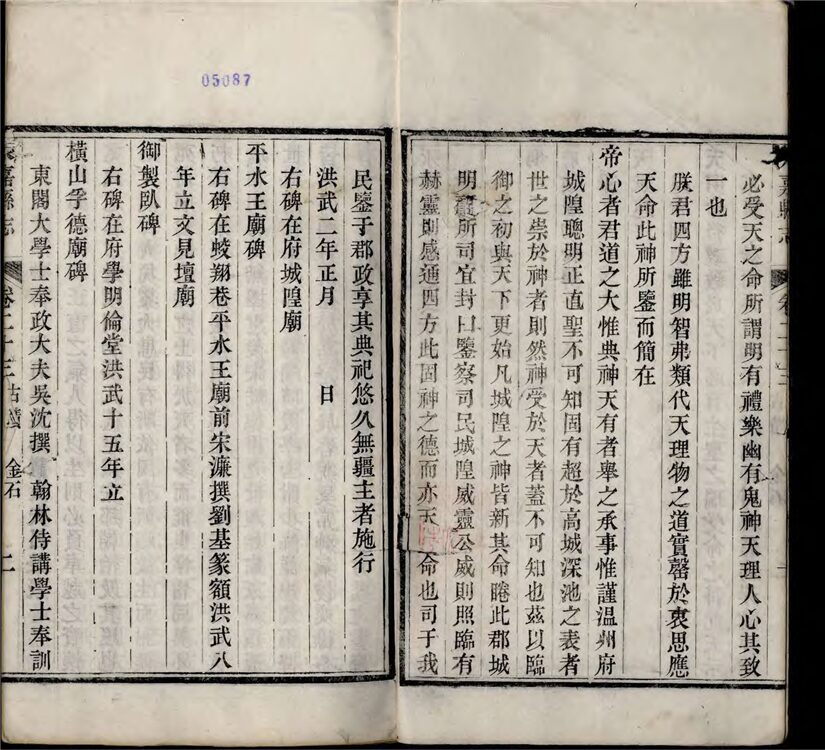 必受天之命所謂明有禮樂幽有鬼神天理人心其致
一也
朕君四方雖明智弗類代天理物之道實罄於衷思應
天命此神所鑒而簡在
帝心者君道之大惟典神天有者舉之承事惟謹温州府
城隍聰明正直聖不可知固有超於高城深池之表者
世之崇於神者則然神受於天者蓋不可知也茲以臨
御之初與天下更始凡城隍之神皆新其命睠此郡城
明靈所司宜封曰鑒察司民城隍威靈公威則照臨有
赫靈則感通四方此固神之德而亦天命也司于我
嘉縣志
卷二十三
05087
民鑒于郡政享其典祀悠久無疆主者施行
洪武二年正月 日
右碑在府城隍廟
平水王廟碑
右碑在蛟翔巷平水王廟前宋濂撰劉基篆額洪武八
年立文見壇廟
御製臥碑
右碑在府學明倫堂洪武十五年立
橫山孚德廟碑
東閣大學士奉政大夫吳沈撰 翰林侍講學士奉訓
嘉縣志 卷二十三 古蹟 金石 二